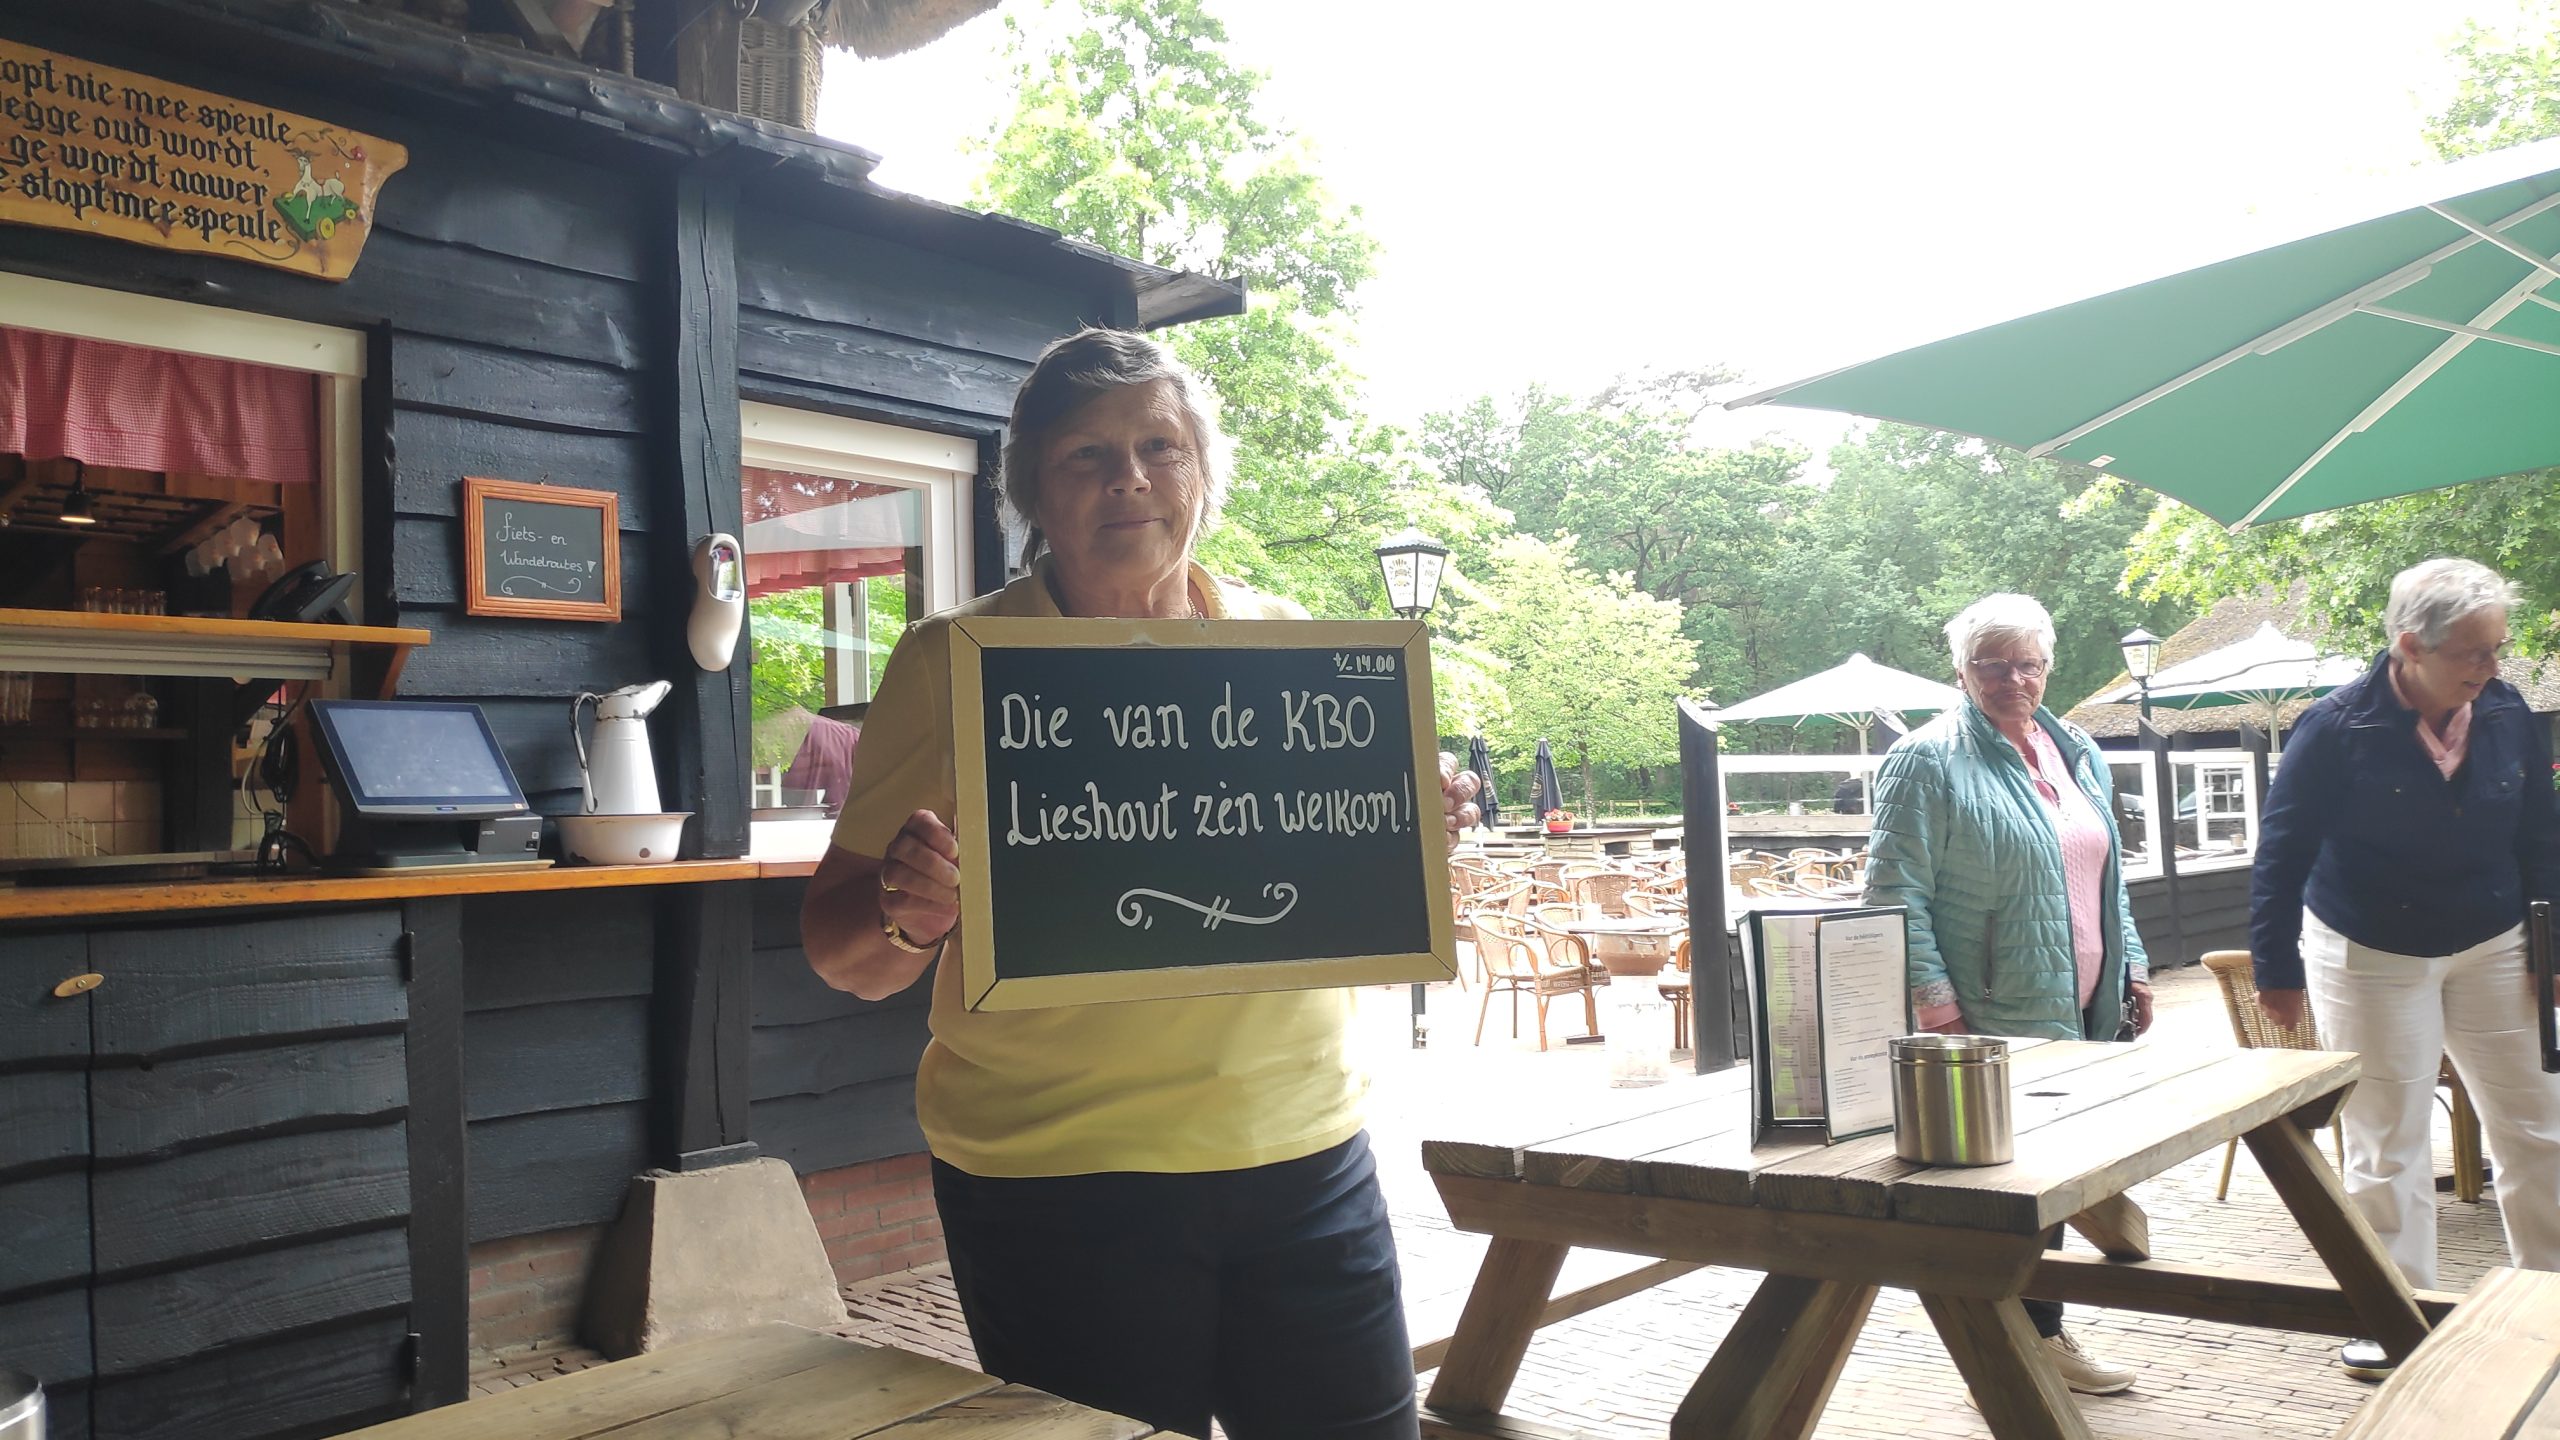 opt nie mee speule
egge oud wordt,
ge wordt aawer
stopt mee speule
fiets- en
Wandelroutes!
+/- 14.00
Die van de KBO
Lieshout zèn welkom!